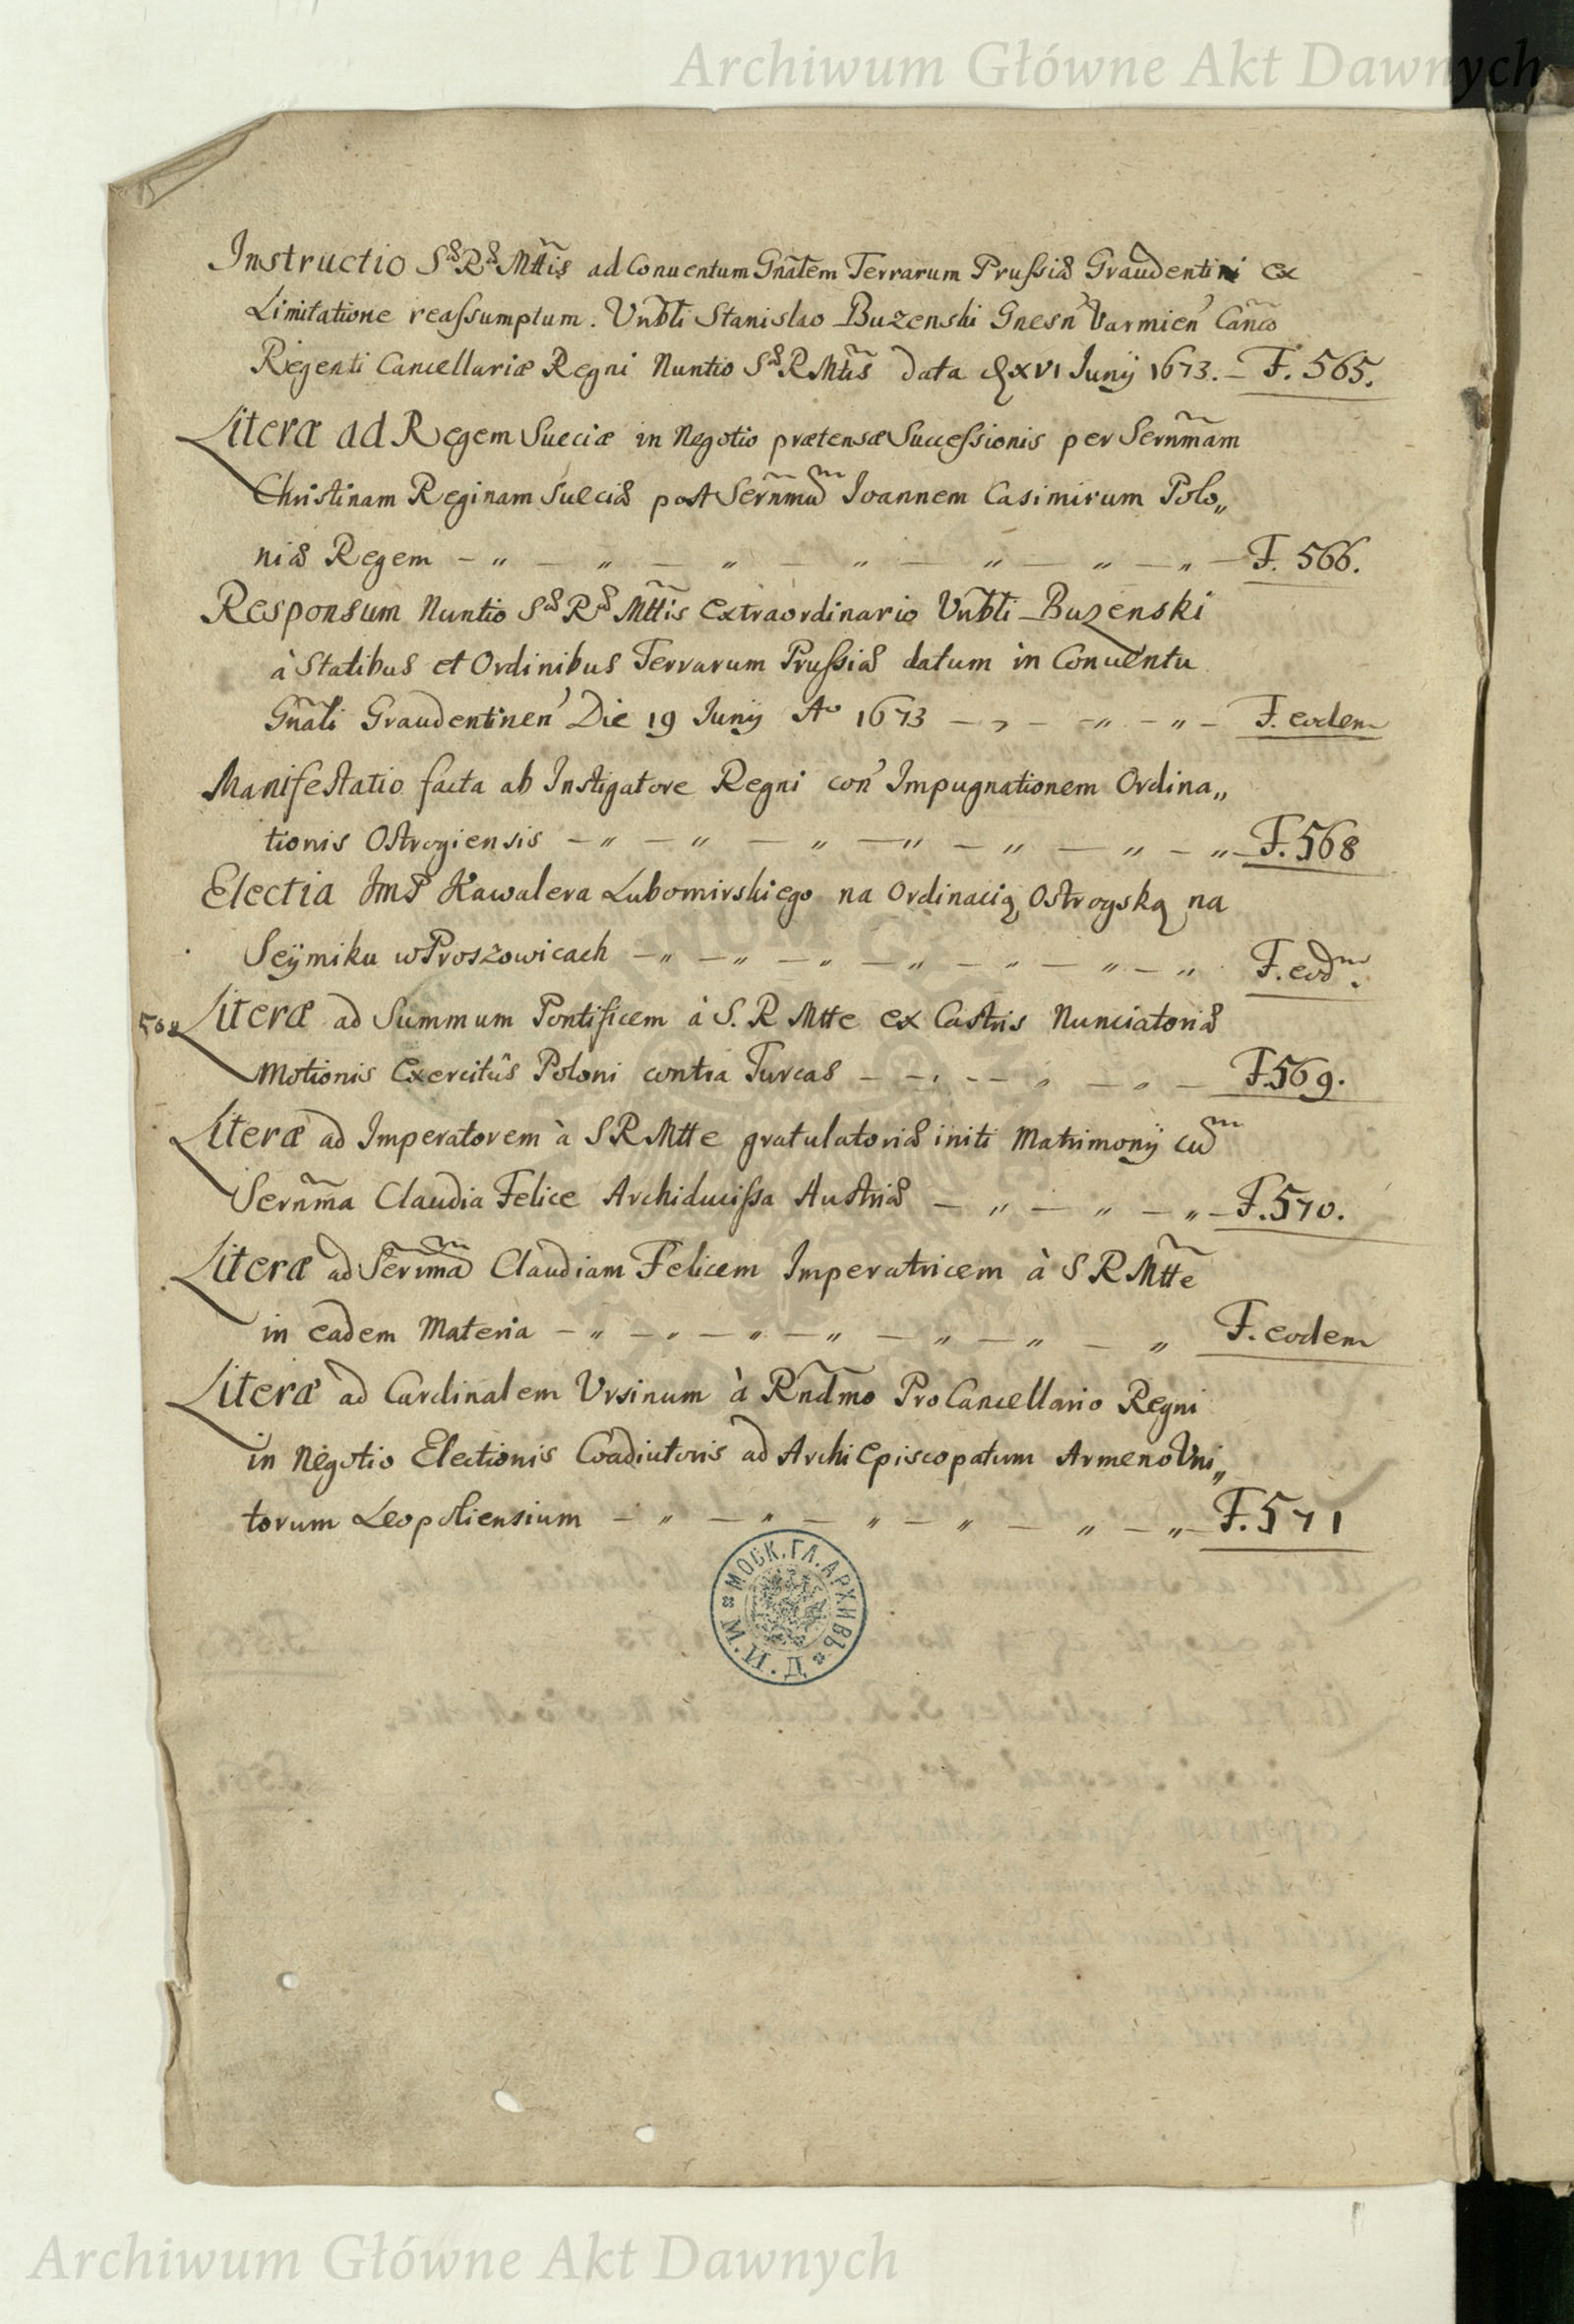 Archiwum Główne Akt Dawnych
Instructio Sæ Ræ Mttis ad Conuentum Gnalem Terrarum Prussiæ Graudentini ex
Limitatione reassumptum. Vnbli Stanislao Buzenski Gnesn' Varmien' Canco
Regenti Cancellariæ Regni Nuntio Sæ R Mtis data XVI Junÿ 1673. – F. 565.
Literæ ad Regem Sueciæ in Negotio prætensæ Successionis per Sernmam
Christinam Reginam Sueciæ post Sernmu Ioannem Casimirum Polo„
niæ Regem – „ – „ – „ – „ – „ – „ – „ – F. 566.
Responsum Nuntio Sæ Ræ Mttis Extraordinario Vnbli Buzenski
à Statibus et Ordinibus Terrarum Prussiæ datum in Conuentu
Gnali Graudentinen' Die 19 Junÿ Ao 1673 – „ – „ – „ – F. eodem
Manifestatio facta ab Instigatore Regni con' Impugnationem Ordina„
tionis Ostrogiensis – „ – „ – „ – „ – „ – „ – „ – F. 568
Electia JmP Kawalera Lubomirskiego na Ordinacią Ostrogską na
Seÿmiku w Proszowicach – „ – „ – „ – „ – „ – „ – „ F. eodm.
Literæ ad Summum Pontificem à S. R Mtte ex Castris Nunciatoriæ
Motionis Exercitûs Poloni contra Turcas – „ – – „ – „ – F. 569.
Literæ ad Imperatorem à S R Mtte gratulatoriæ initi Matrimonÿ cum
Sernma Claudia Felice Archiducissa Austriæ – „ – „ – „ – F. 570.
Literæ ad Serrma Claudiam Felicem Imperatricem à S R Mtte
in eadem Materia – „ – „ – „ – „ – „ – „ – „ F. eodem
Literæ ad Cardinalem Vrsinum à Rndmo ProCancellario Regni
in Negotio Electionis Coadiutoris ad ArchiEpiscopatum ArmenoVni„
torum Leopoliensium – „ – „ – „ – „ – „ – „ – F. 571
МОСК. ГЛ. АРХИВЪ
М. И. Д.
Archiwum Główne Akt Dawnych